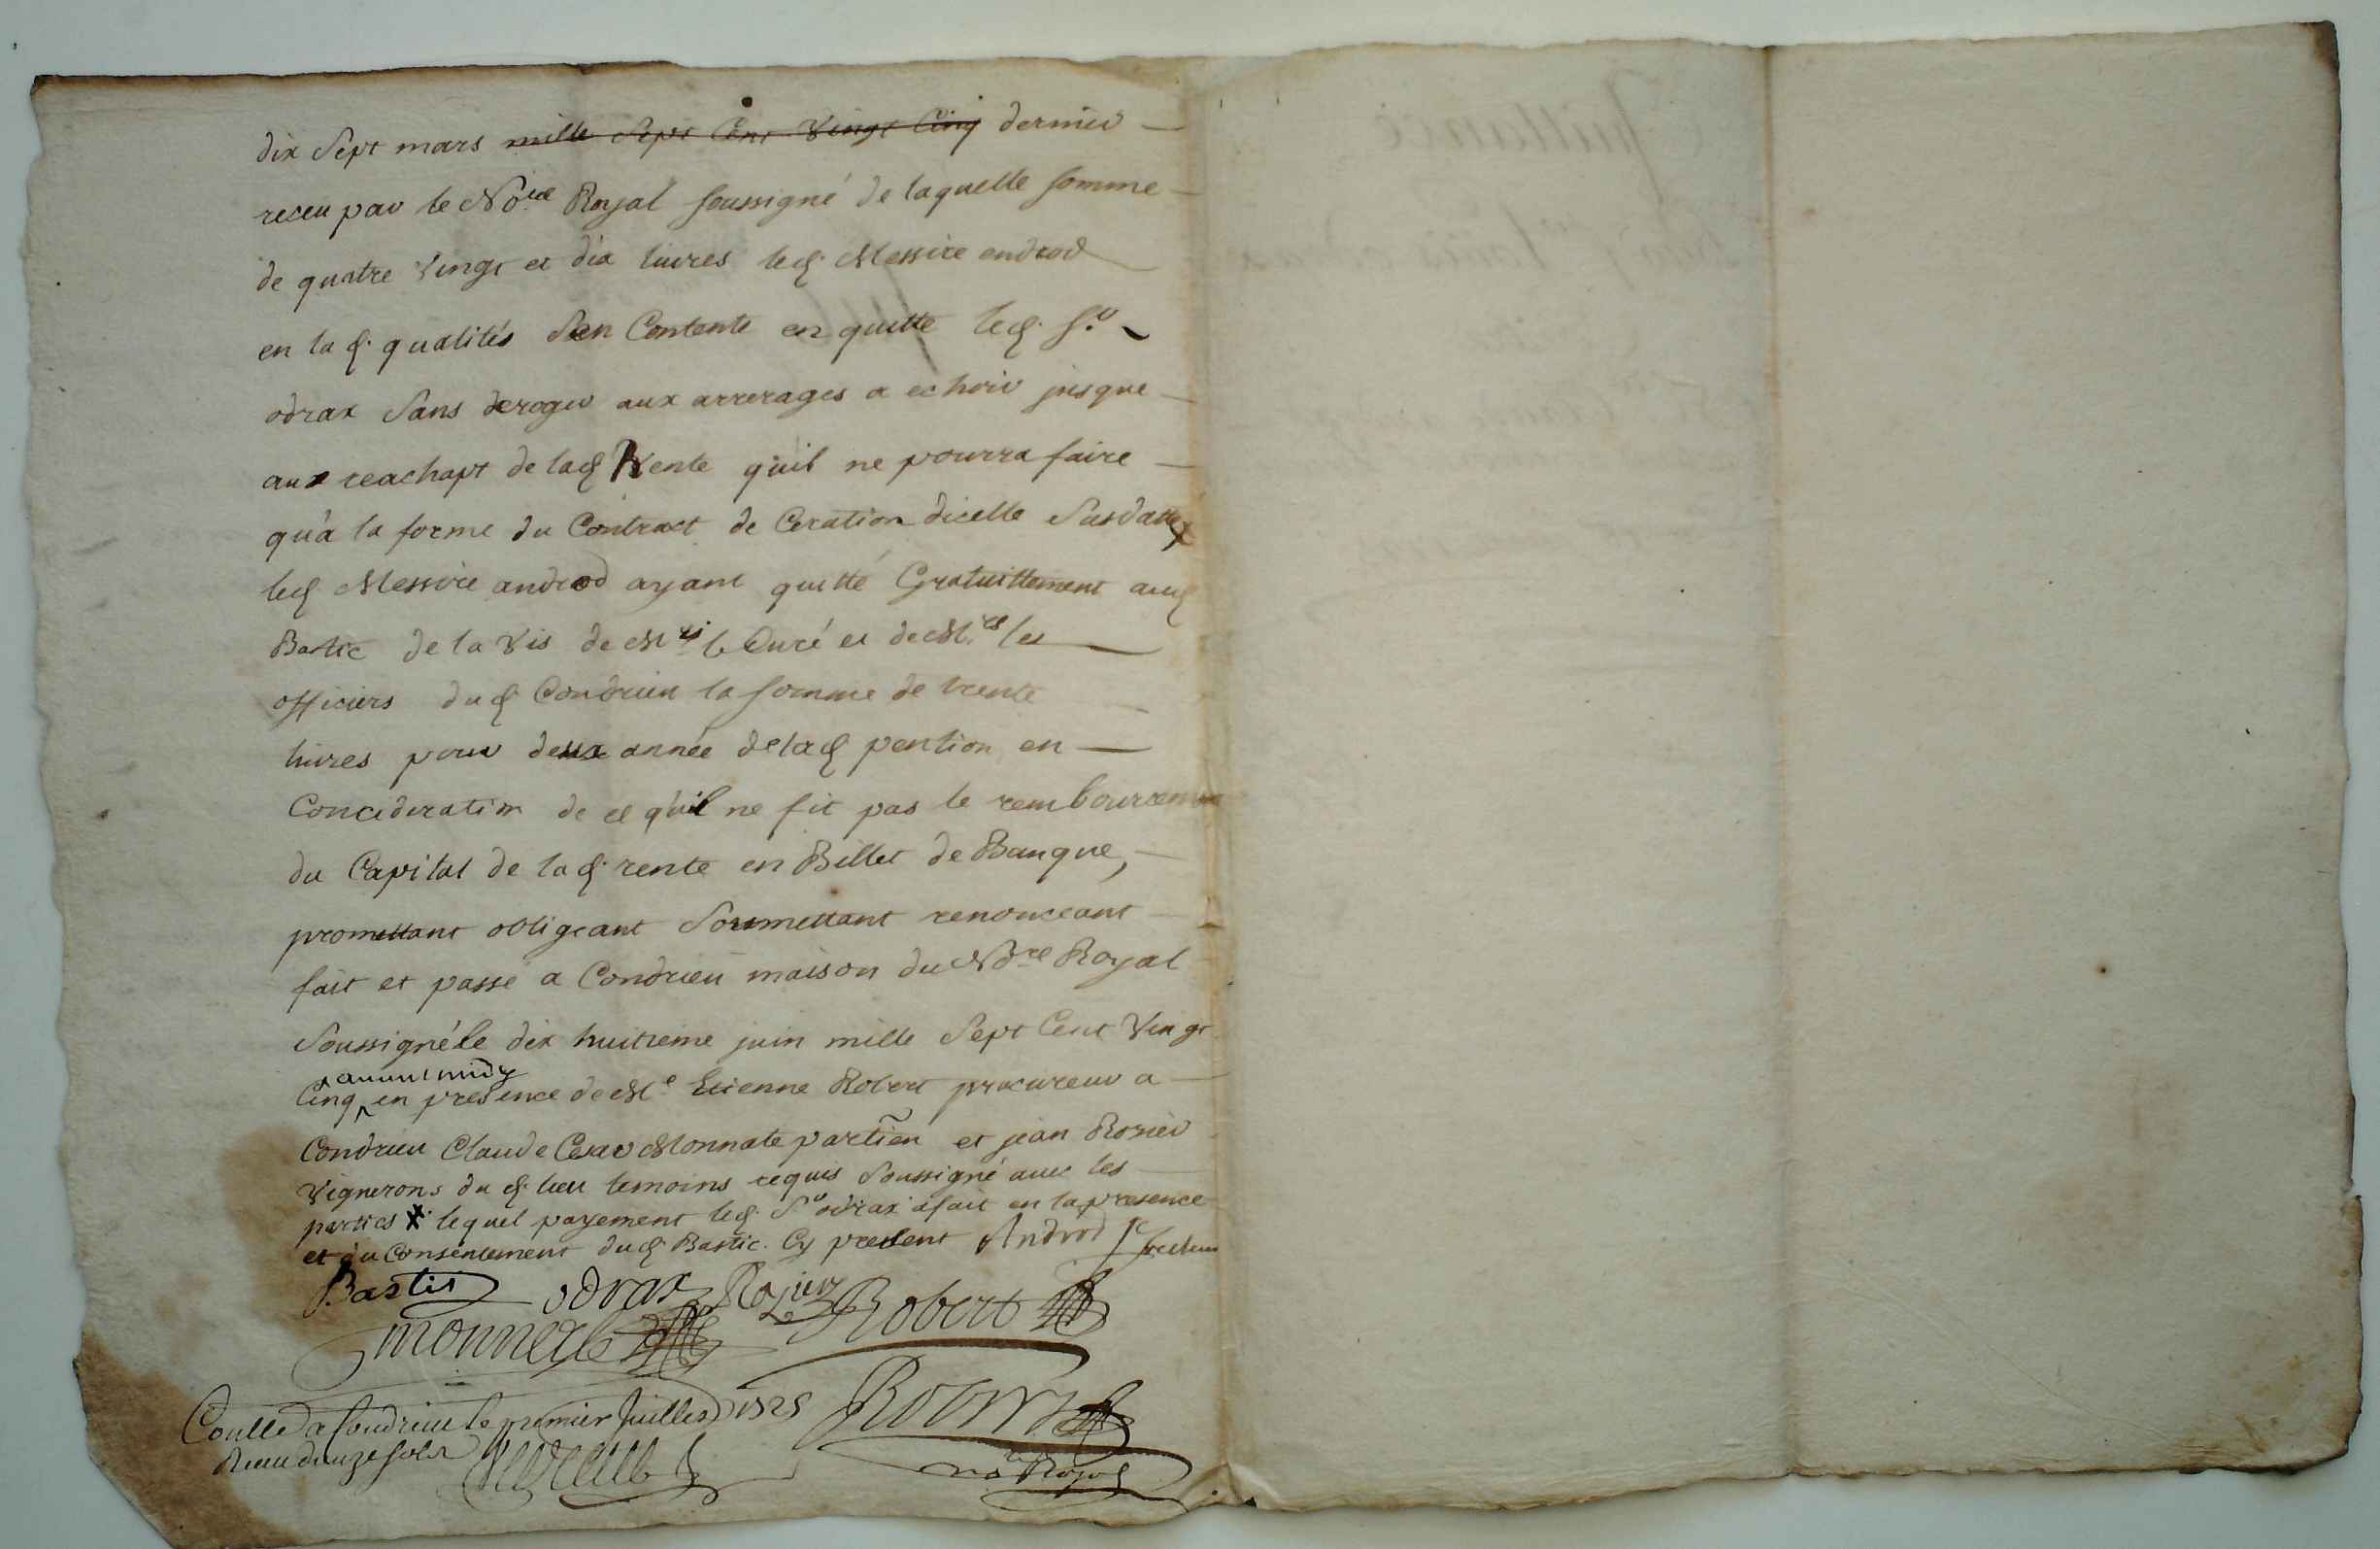 dix Sept mars mille Sept Cent Vingt Cinq dernier
receu par le No.re Royal soussigné de laquelle somme
de quatre Vingt et dix livres led. Messire androd
en lad. qualités Sen Contente en quitte led. Sr
odrax Sans deroger aux arrerages a echoir jusque
aux reachapt de lad Rente quil ne pourra faire
qu'a la forme du Contract de Creation dicelle Susdatté
led Messire androd ayant quitté Gratuittement aud
Bastie de la Vis de Mre le Curé et de Mrs les
officiers dud Condrieu la somme de trente
livres pour deux année de lad pention en
Concideration de ce quil ne fit pas le rembourcement
du Capital de lad. rente en Billet de Banque,
promettant obligeant Soumettant renonceant
fait et passé a Condrieu maison du No.re Royal
Soussigné le dix huitieme juin mille Sept Cent Vingt
avant midy
Cinq en presence de Me Etienne Robert procureur a
Condrieu Claude Cesar Monnate et jean Rozier
Vignerons dud. lieu temoins requis Soussigné avec les
parties lequel payement led. Sr odrax a fait en la presence
et du Consentement dud. Bastie. Cy present Androd
Bastie odrax Rozier Robert
monnate
Conllé a Condrieu le premier Juillet 1725 Robert
Receu douze sols
nore Royal